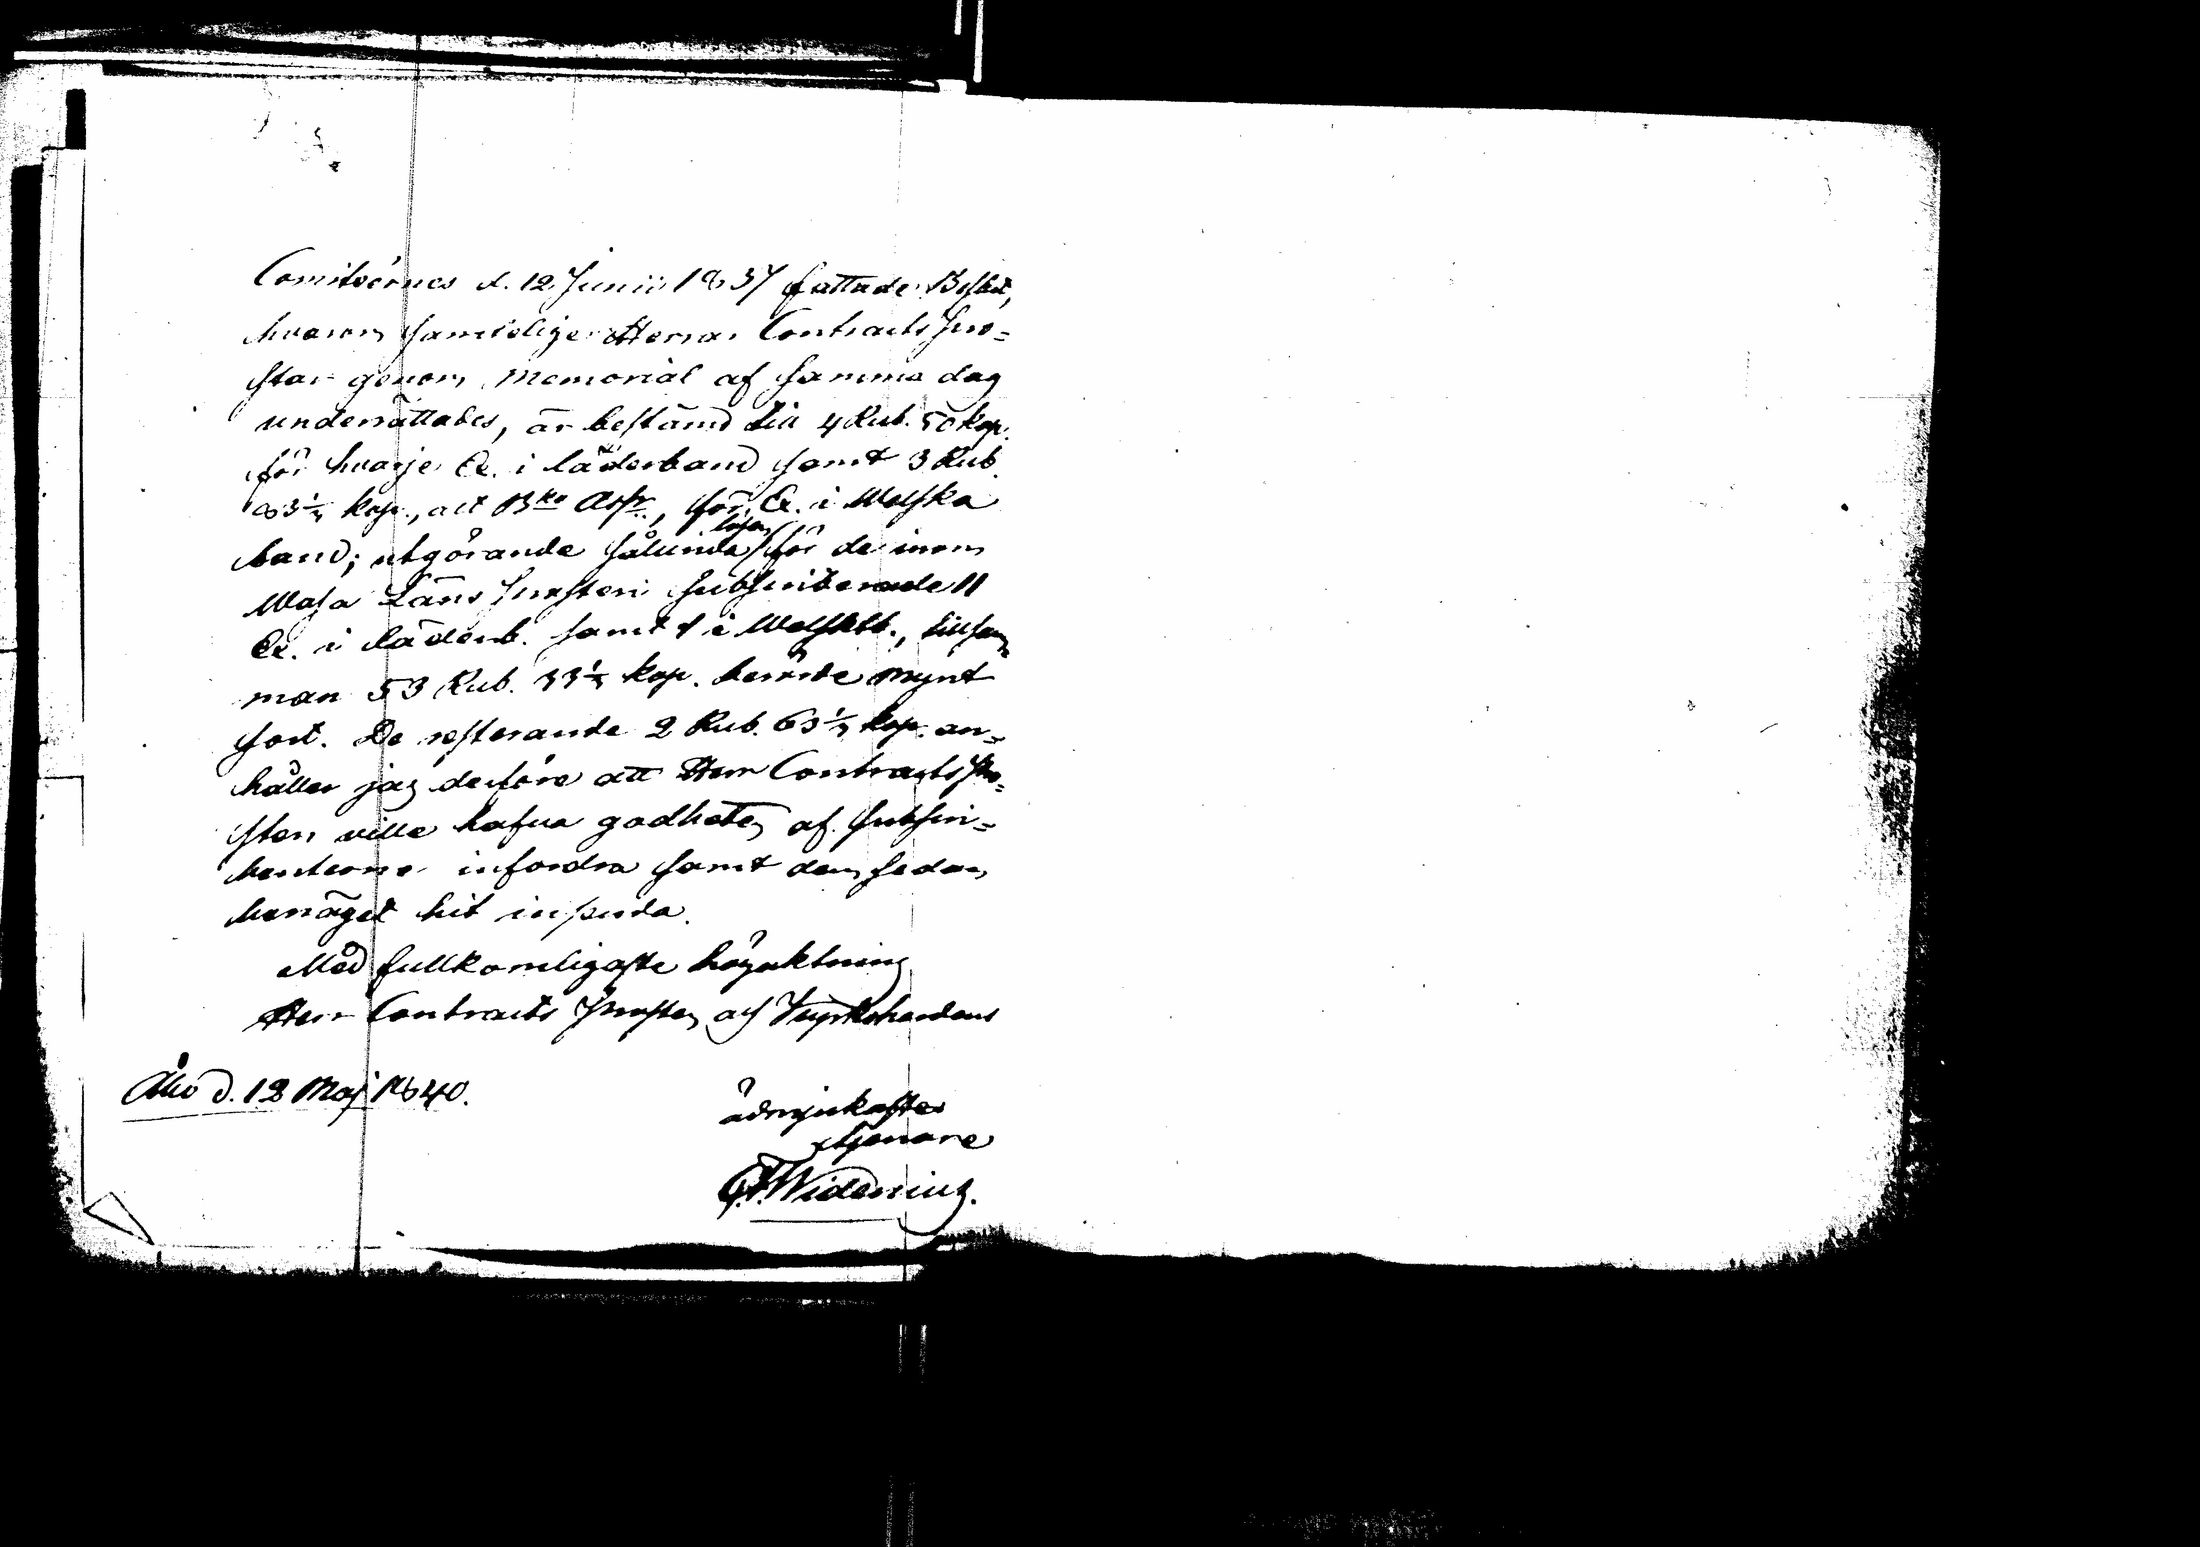 Comiterérnes d. 12 Junii 1837 fattade Beslut,
hvarom samtelige Herrar Contracts pro=
star genom Memorial af samma dag
underrättades, är bestämd till 4 Rub. 50 kop.
för hvarje Ex. i läderband samt 3 Rub.
83⅓ kop., allt Bko Ass., för Ex. i Welska
band; utgörande sålunda lösen för de inom
Wasa Läns prosteri subscriberade 11
Ex. i läderb. samt 1 i Welskt b., tillsam
man 53 Rub. 33⅓ kop. berörde mynt
sort. De resterande 2 Rub. 63⅓ kop. an=
håller jag derföre att Herr Contracts Pro=
sten ville hafva godheten af subscri=
benterne infordra samt dem sedan
benäget hit insända.
Med fullkomligaste högaktning
Herr Contracts Prosten och
ödmjukaste
tjenare
Åbo d. 12 Maj 1840.
Widenius.